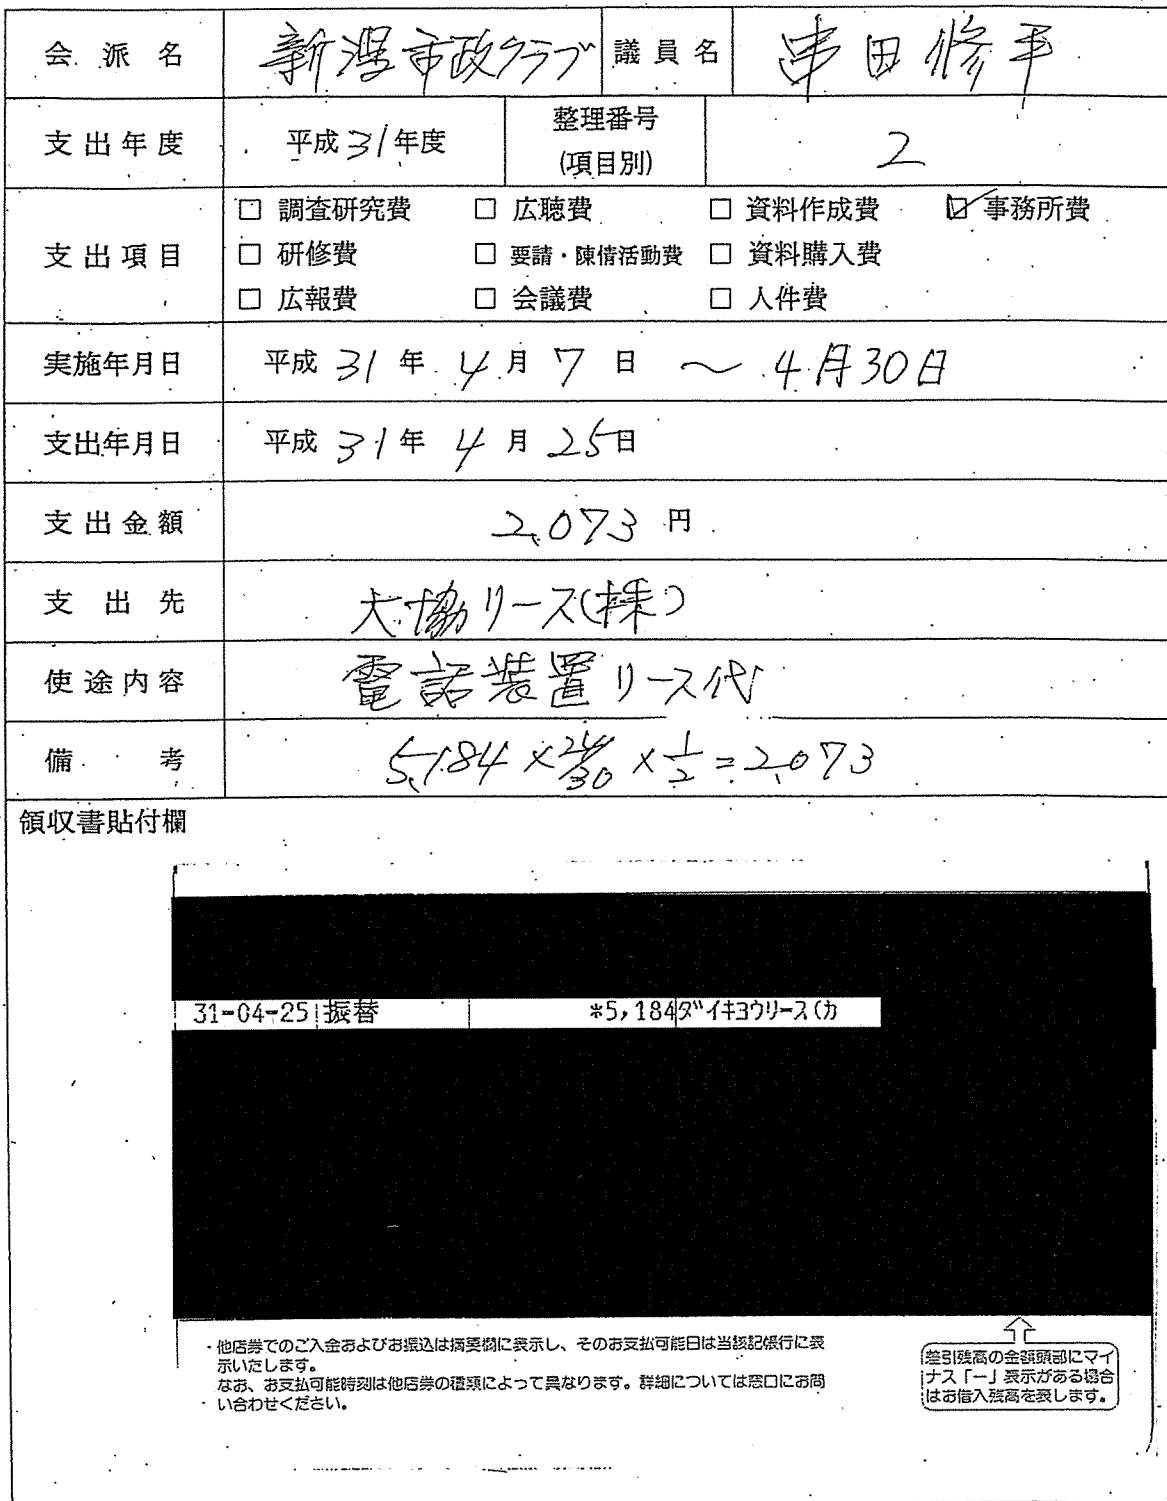 会派名 新潟市政クラブ 議員名 串田修平
支出年度 平成31年度 整理番号(項目別) 2
支出項目
□ 調査研究費 □ 広聴費 □ 資料作成費 ☑ 事務所費
□ 研修費 □ 要請・陳情活動費 □ 資料購入費
□ 広報費 □ 会議費 □ 人件費
実施年月日 平成 31 年 4 月 7 日 ～ 4月30日
支出年月日 平成 31 年 4 月 25日
支出金額 2,073 円
支出先 大協リース(株)
使途内容 電話装置リース代
備考 5,184×24/30×1/2=2,073
領収書貼付欄
31-04-25 振替 *5,184 ダイキヨウリース(カ
・他店券でのご入金およびお振込は摘要欄に表示し、そのお支払可能日は当該記帳行に表
示いたします。
なお、お支払可能時刻は他店券の種類によって異なります。詳細については窓口にお問
い合わせください。
差引残高の金額頭部にマイ
ナス「−」表示がある場合
はお借入残高を表します。